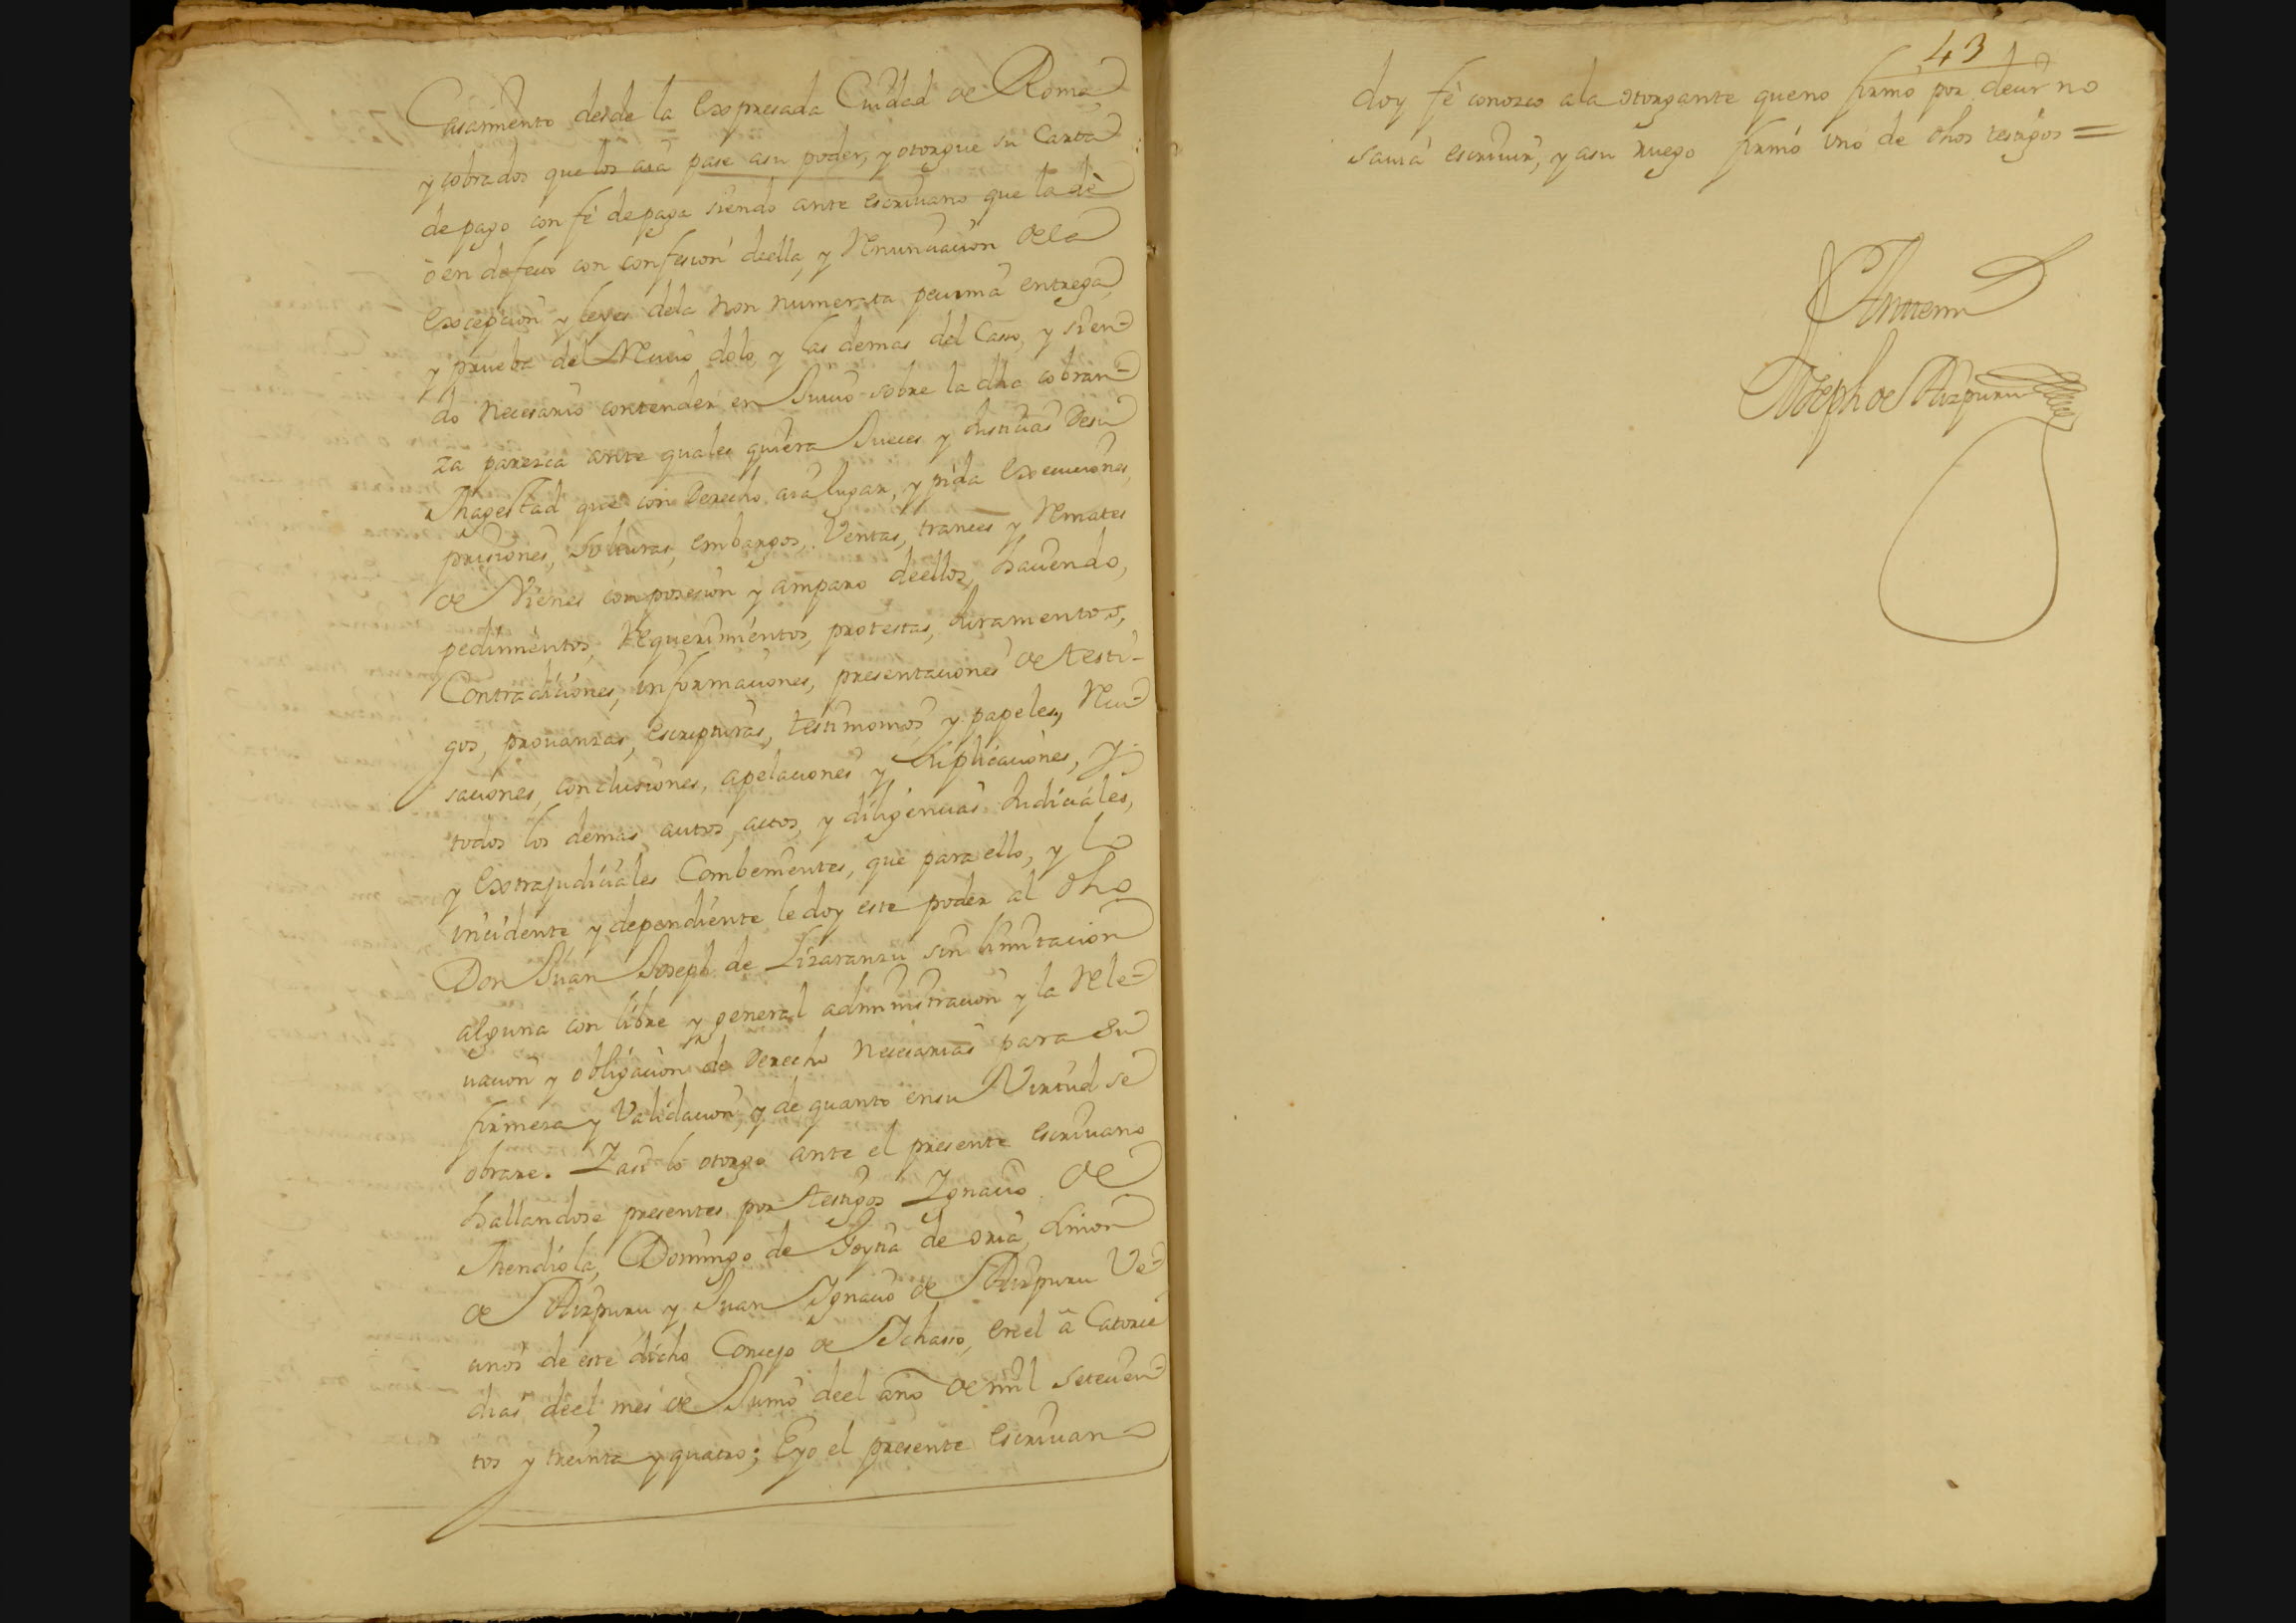 Casamiento desde la expresada Ciudad de Roma
y cobrados que los aia pase a su poder, y otorgue su Carta
de pago con fé de paga siendo ante escriuano que la dè
ò en defecto con confesion de ella, y Renunciacion de la
excepcion y leyes dela non numerata pecunia entrega,
y prueba del Reciuo dolo y las demas del Caso, y sien-
do necesario contender en Juicio sobre la dha cobran-
za paresca ante quales quiera Jueces y Justicias de su
Magestad que con Derecho aia lugar, y pida execuciones,
prisiones, solturas, embargos, Ventas, trances y Remates
de Vienes con posesion y amparo de ellos, haciendo,
pedimientos, Requerimientos, protestas, Juramentos,
Contradiciones, informaciones, presentaciones de testi-
gos, prouanzas, escripturas, testimonios y papeles, Recu-
saciones, conclusiones, apelaciones y suplicaciones, y
todos los demas autos, actos, y diligencias Judiciales,
y extrajudiciales Combenientes, que para ello, y lo
incidente y dependiente le doy este poder al dho
Don Juan Joseph de Lizaranzu sin limitacion
alguna con libre y general administracion y la Rele-
uacion y obligacion de Derecho necesarias para su
firmeza y Validacion, y de quanto en su Virtud se
obrare. Y asi lo otorgo ante el presente escriuano
hallandose presentes por testigos Ignacio de
Mendiola, Domingo de Goytia de oria, Simon
de Aizpuru y Juan Ignacio de Aizpuru Ve-
cinos de este dicho Concejo de Ichaso, en el à Catorce
dias de el mes de Junio de el año de mil setecien-
tos y treinta y quatro; E yo el presente escriuano
43
doy fè conozco a la otorgante que no firmò por decir no
sauia escriuir, y a su ruego firmò uno de dhos testigos =
Ante mi
Joseph de Aizpuru